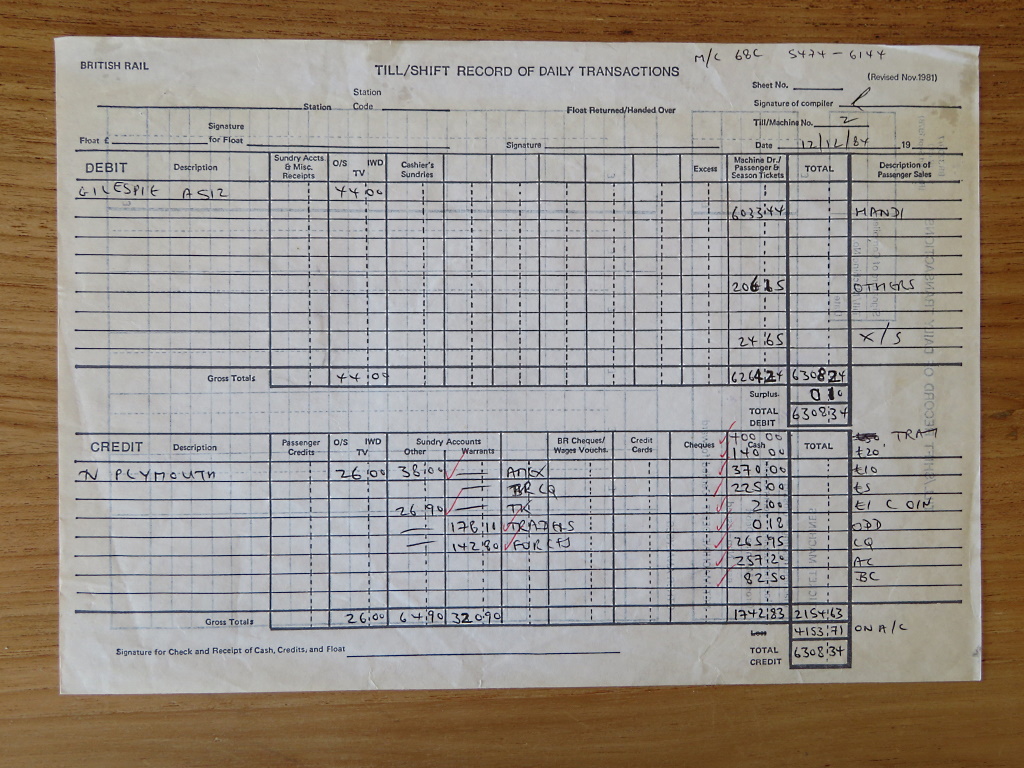 M/C 68C 5474 - 6144
BRITISH RAIL
TILL/SHIFT RECORD OF DAILY TRANSACTIONS
(Revised Nov.1981)
Sheet No.
Station
Station Code
Float Returned/Handed Over
Signature of compiler
Till/Machine No. 2
Float £ Signature for Float Signature Date 12/12/84 19
DEBIT Description Sundry Accts. & Misc. Receipts O/S IWD TV Cashier's Sundries Excess Machine Dr./ Passenger & Season Tickets TOTAL Description of Passenger Sales
GILESPIE ASIZ 44 00
6033 44 HANDI
206 15 OTHERS
24 65 X/S
Gross Totals 44 00 6264 24 6308 24
Surplus 0 10
TOTAL DEBIT 6308 34
CREDIT Description Passenger Credits O/S IWD TV Sundry Accounts Other Warrants BR Cheques/ Wages Vouchs. Credit Cards Cheques Cash TOTAL
400 00 TRAV
140 00 £20
N PLYMOUTH 26 00 38 00 AMX 370 00 £10
BRCQ 225 00 £5
26 90 TK 2 00 £1 COIN
178 11 TRADERS 0 18 ODD
142 80 FORCES 265 95 CQ
257 20 AC
82 50 BC
Gross Totals 26 00 64 90 320 90 1742 83 2154 63
Less 4153 71 ON A/C
Signature for Check and Receipt of Cash, Credits, and Float
TOTAL CREDIT 6308 34